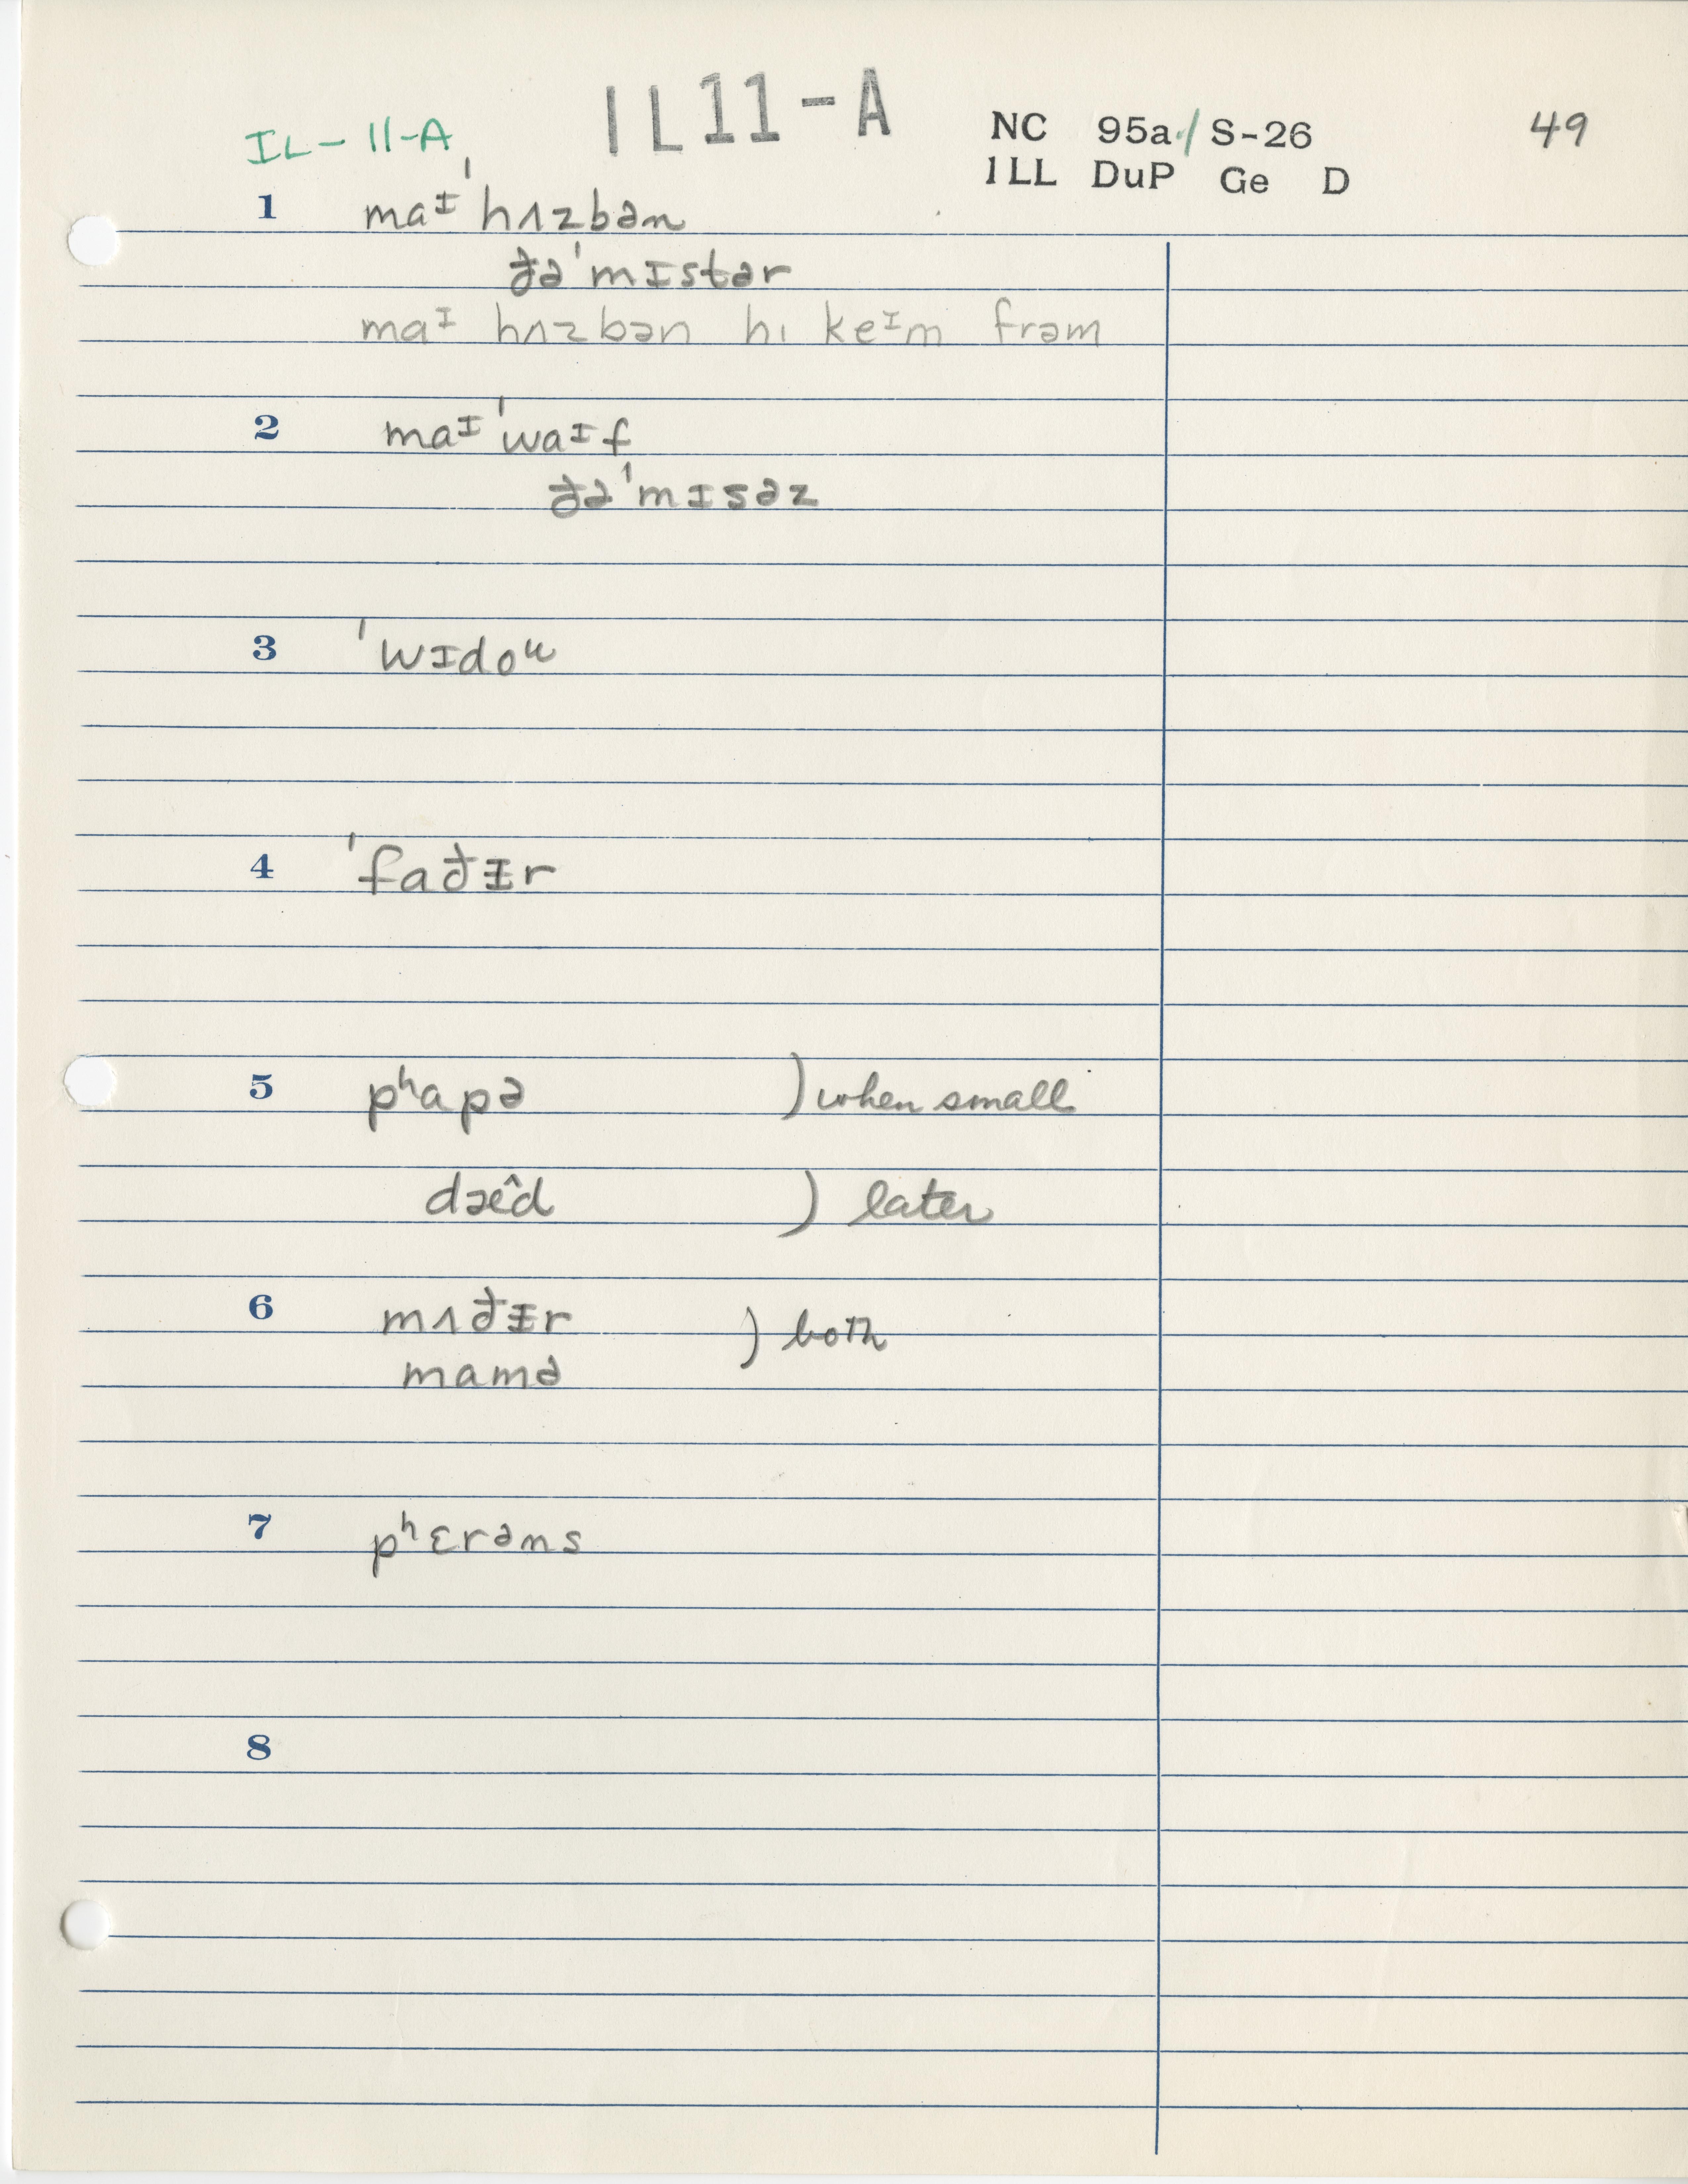 IL-11-A
IL11-A
NC 95a/ S-26
49
ILL DuP Ge D
1 maᶦ ˈhʌzbən
ðə ˈmɪstər
maᶦ hʌzbən hɪ keᶦm frəm
2 maᶦ ˈwaᶦf
ðə ˈmɪsəz
3 ˈwɪdoᵘ
4 ˈfaðɨr
5 pʰapə ) when small
dæ̂d ) later
6 mʌðɨr ) both
mamə
7 pʰɛrəns
8